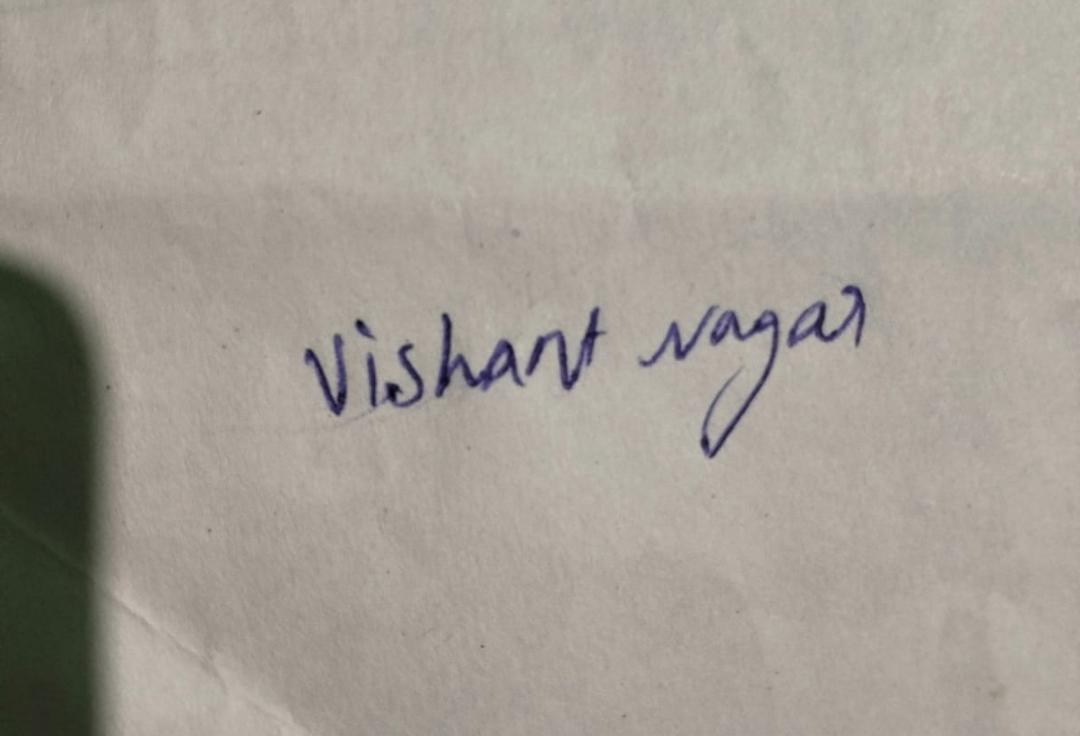 Vishant nagar